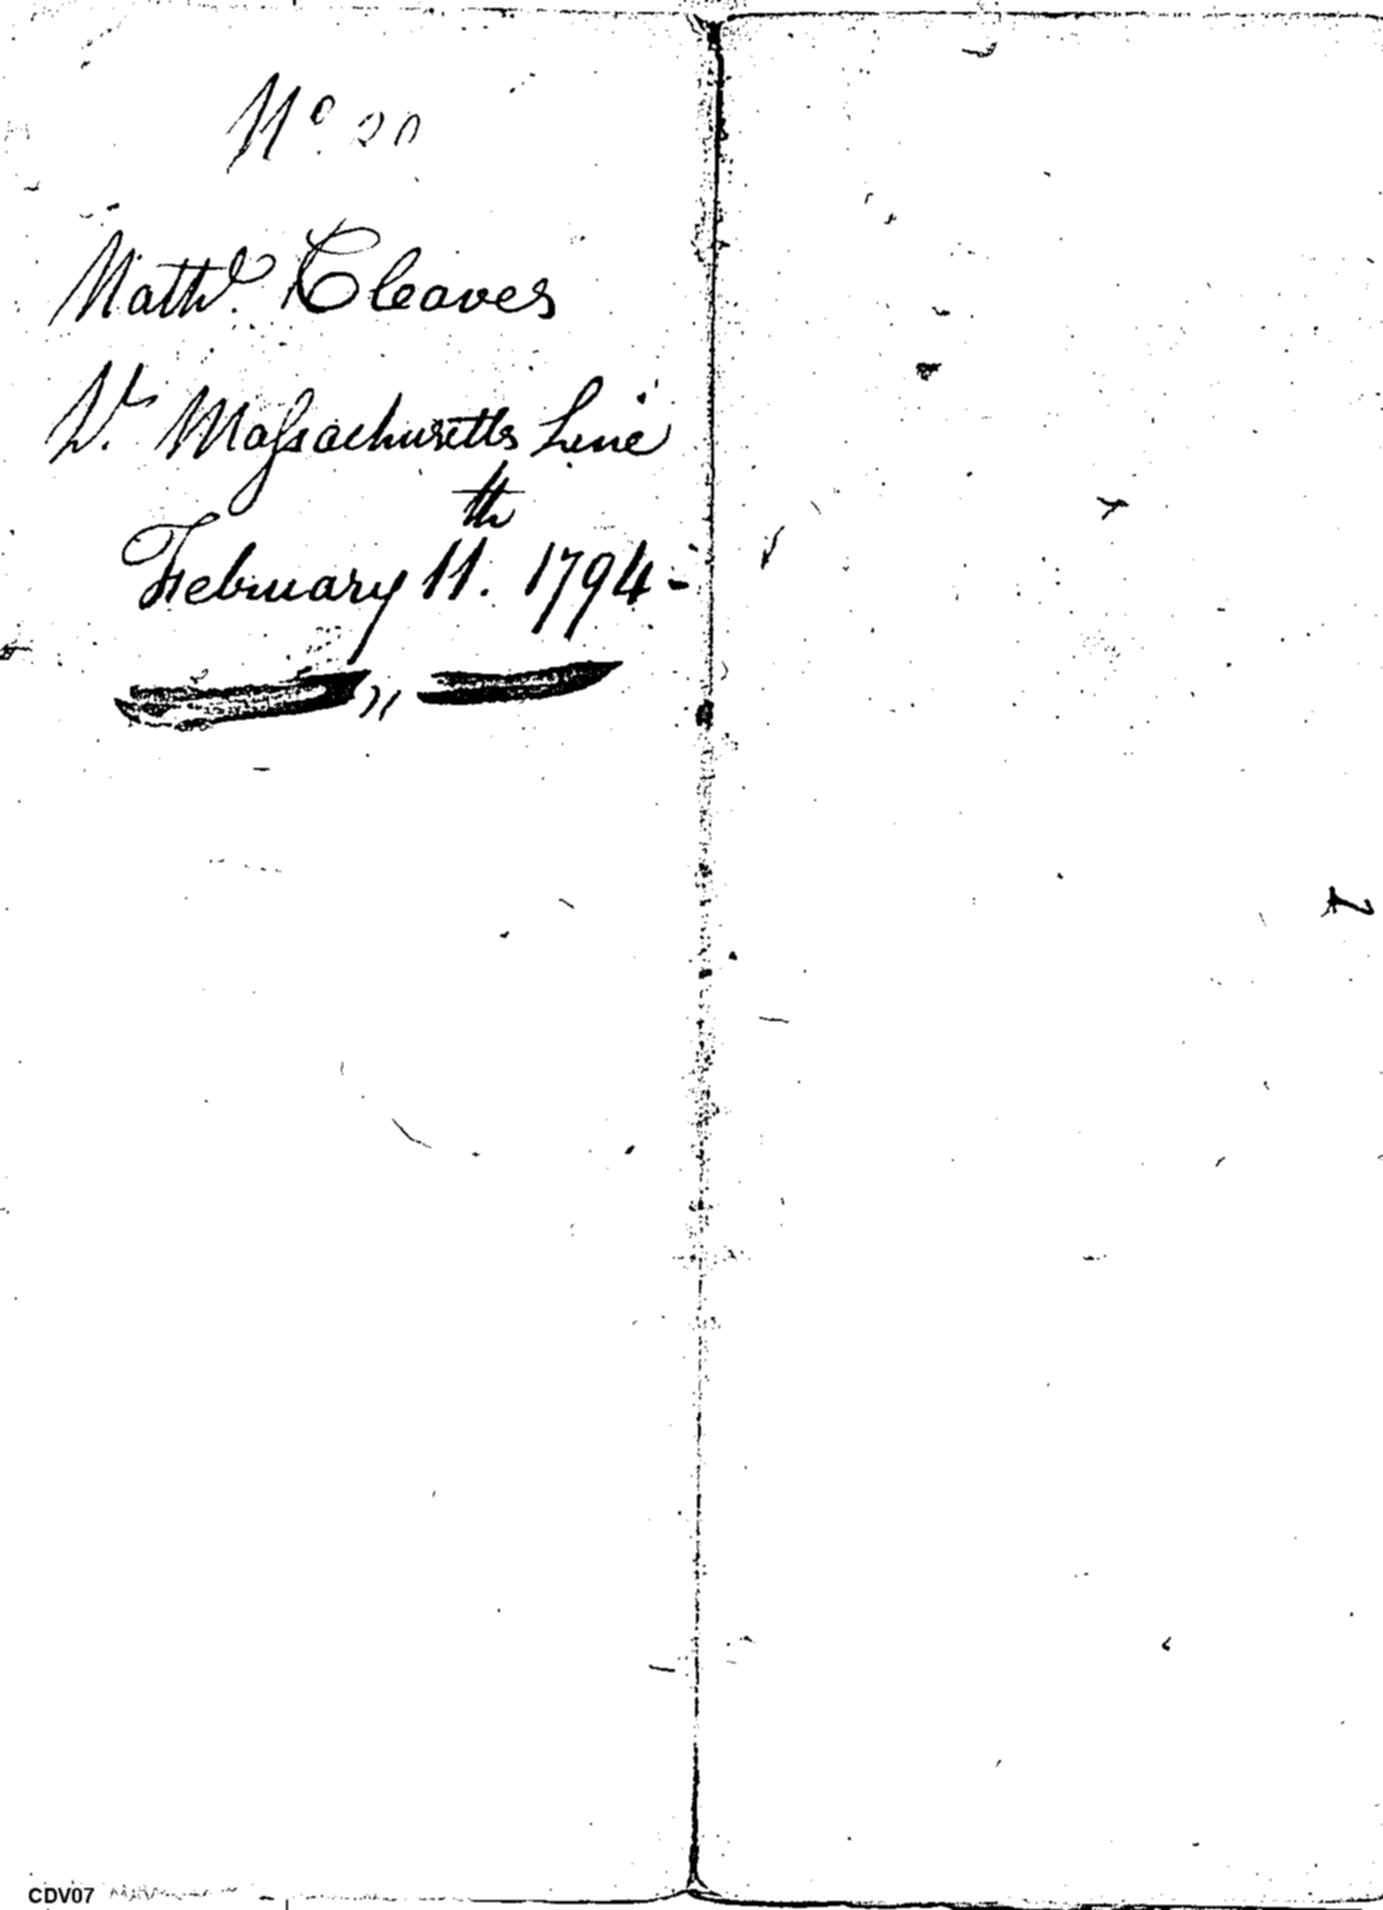 No. 20
Nathl. Cleaves
Lt. Massachusetts Line
February 11th. 1794-
CDV07